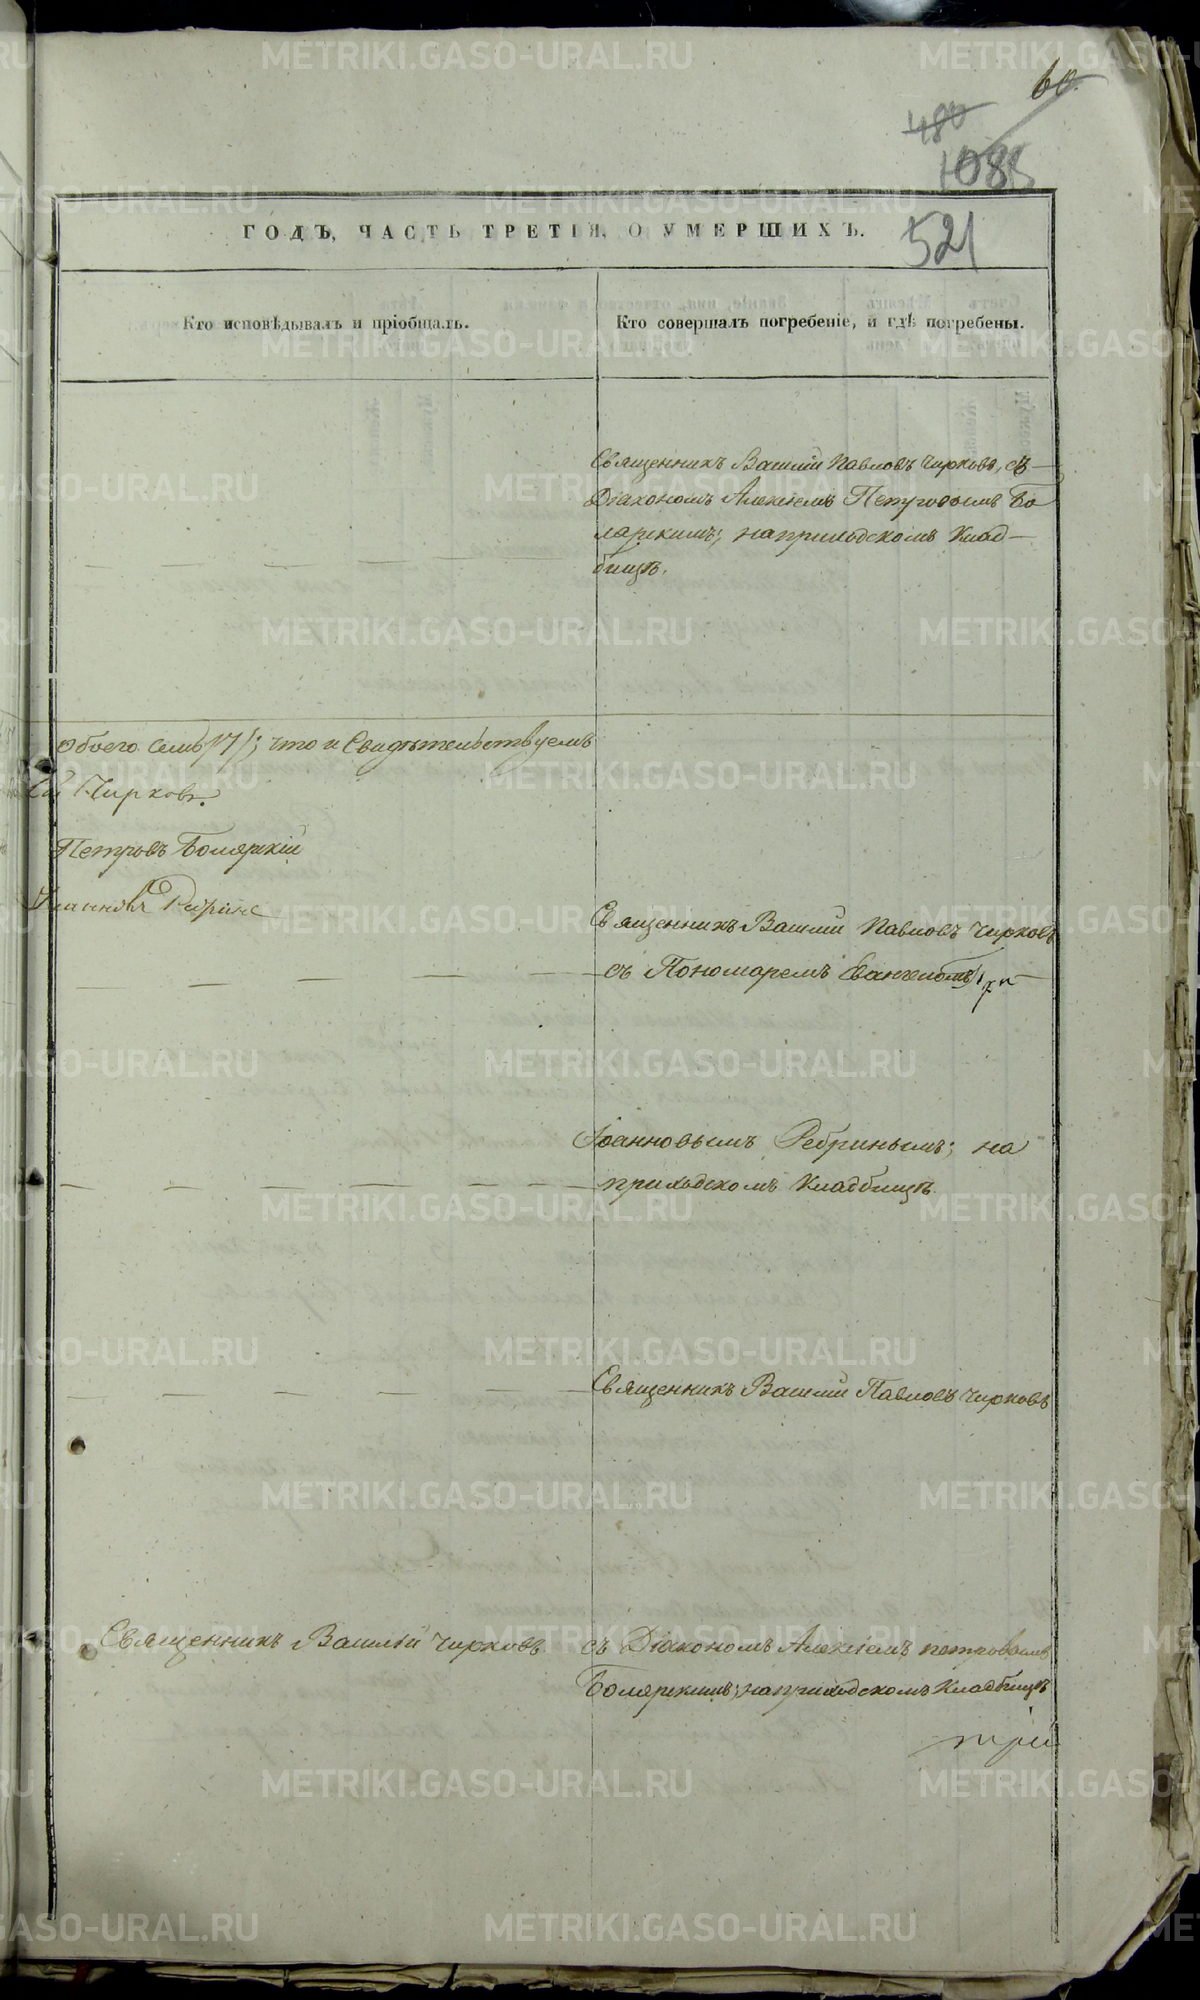 60.
480
1085
521
ГОДЪ, ЧАСТЬ ТРЕТІЯ, О УМЕРШИХЪ.
Кто исповѣдывалъ и пріобщалъ.
Кто совершалъ погребеніе, и гдѣ погребены.
Священникъ Василій Павловъ Чирковъ, съ
Діакономъ Алексіемъ Петровымъ Бо
лярскимъ; на приходскомъ Клад-
бищѣ.
обоего семь /7/; что и Свидѣтельствуемъ
Чирковъ.
Петровъ Болярскій
Іоанновъ Ребринъ
Священникъ Василій Павловъ Чирковъ
съ Пономаремъ
Іоанновымъ Ребринымъ; на
приходскомъ Кладбищѣ.
Священникъ Василій Павловъ Чирковъ
Священникъ Василій Чирковъ
съ Діакономъ Алексіемъ Петровымъ
Болярскимъ; на приходскомъ Кладбищѣ
три
METRIKI.GASO-URAL.RU